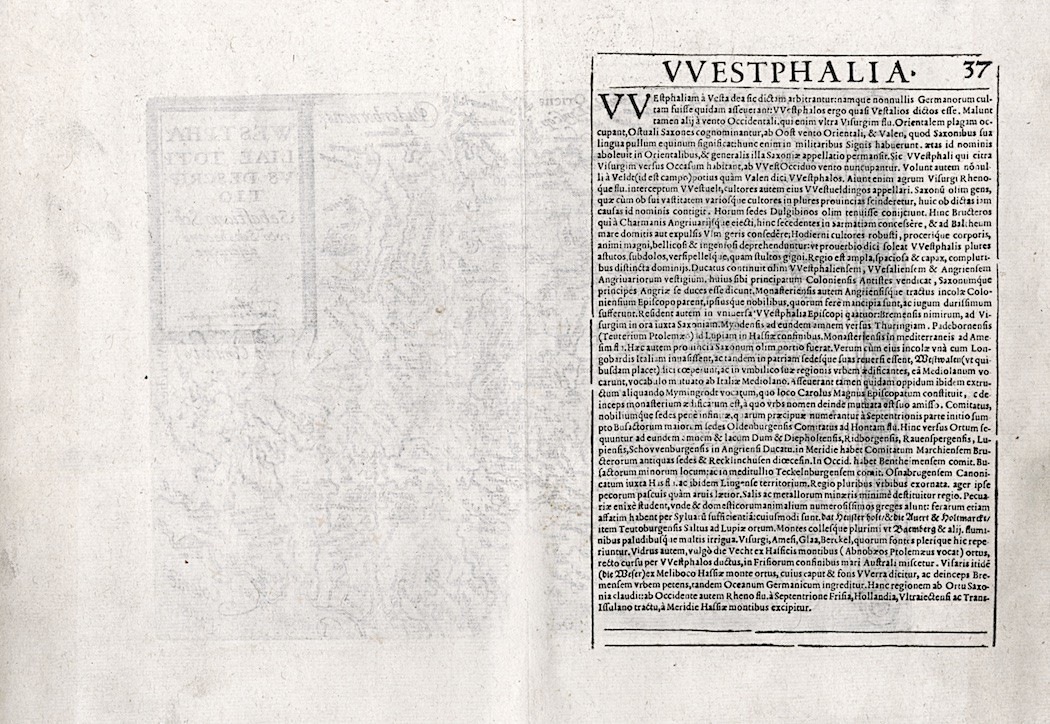 VVESTPHALIA. 37
VVEstphaliam à Vesta dea sic dictam arbitrantur: namque nonnullis Germanorum cul-
tam fuisse quidam asseuerant: VVestphalos ergo quasi Vestalios dictos esse. Malunt
tamen alij à vento Occidentali, qui enim vltra Visurgim flu. Orientalem plagam oc-
cupant, Ostuali Saxones cognominantur, ab Oost vento Orientali, & Valen, quod Saxonibus sua
lingua pullum equinum significat: hunc enim in militaribus Signis habuerunt. ætas id nominis
aboleuit in Orientalibus, & generalis illa Saxoniæ appellatio permansit. Sic VVestphali qui citra
Visurgim versus Occasum habitant, ab VVest Occiduo vento nuncupantur. Volunt autem nõnul-
li à Veldt (id est campo) potius quàm Valen dici VVestphalos. Aiunt enim agrum Visurgi Rheno-
que flu. interceptum VVestuelt, cultores autem eius VVestueldingos appellari. Saxonũ olim gens,
quæ cùm ob sui vastitatem variosque cultores in plures prouincias scinderetur, huic ob dictas iam
causas id nominis contigit. Horum sedes Dulgibinos olim tenuisse conijciunt. Hinc Bructeros
qui à Charmanis Angriuarijsque eiecti, hinc secedentes in Sarmatiam concessêre, & ad Baltheum
mare domitis aut expulsis geris consedêre, Hodierni cultores robusti, procerique corporis,
animi magni, bellicosi & ingeniosi deprehenduntur: vt prouerbio dici soleat VVestphalis plures
astutos, subdolos, versipellesque, quam stultos gigni. Regio est ampla, spaciosa & capax, compluri-
bus distincta dominijs. Ducatus continuit olim VVestphaliensem, VVesaliensem & Angriensem
Angriuariorum vestigium, huius sibi principatum Coloniensis Antistes vendicat, Saxonumque
principes Angriæ se duces esse dicunt. Monasteriensis autem Angriensisque tractus incolæ Colo-
niensium Episcopo parent, ipsiusque nobilibus, quorum ferè mancipia sunt, ac iugum durissimum
sufferunt. Resident autem in vniuersa VVestphalia Episcopi quatuor: Bremensis nimirum, ad Vi-
surgim in ora iuxta Saxoniam. Myndensis ad eundem amnem versus Thuringiam. Padebornensis
(Teuterium Ptolemæo) id Lupiam in Hassiæ confinibus. Monasteriensis in mediterraneis ad Ame-
sim fl. Hæc autem prouincia Saxonum olim portio fuerat. Verum cùm eius incolæ vnà cum Lon-
gobardis Italiam inuasissent, ac tandem in patriam sedesque suas reuersi essent, Westwalen (vt qui-
busdam placet) dici cœperunt, ac in vmbilico suæ regionis vrbem ædificantes, eã Mediolanum vo-
carunt, vocabulo mutuato ab Italiæ Mediolano. Asseuerant tamen quidam oppidum ibidem extru-
ctum aliquando Mymingrodt vocatum, quo loco Carolus Magnus Episcopatum constituit, de-
inceps monasterium ædificatum est, à quo vrbs nomen deinde mutuata est suo amisso. Comitatus,
nobiliumque sedes penè infinitæ, quarum præcipuæ numerantur à Septentrionis parte initio sum-
pto Busactorum maiorum sedes Oldenburgensis Comitatus ad Hontam flu. Hinc versus Ortum se-
quuntur ad eundem amnem & lacum Dum & Diepholtensis, Ridborgensis, Rauenspergensis, Lu-
piensis, Schovvenburgensis in Angriensi Ducatu. in Meridie habet Comitatum Marchiensem Bru-
cterorum antiquas sedes & Recklinchusen diœcesin. In Occid. habet Bentheimensem comit. Bu-
sactorum minorum locum: ac in meditullio Teckelnburgensem comit. Osnabrugensem Canoni-
catum iuxta fl. ac ibidem Lingense territorium. Regio pluribus vrbibus exornata. ager ipse
pecorum pascuis quàm aruis lætior. Salis ac metallorum mineris minimè destituitur regio. Pecua-
riæ enixè student, vnde & domesticorum animalium numerosissimos greges alunt: ferarum etiam
affatim habent per Syluarũ sufficientiã: cuiusmodi sunt. dat Heuster holt/ & die Auert & Holtmarckt/
item Teutoburgensis Saltus ad Lupiæ ortum. Montes collesque plurimi vt Bæmberg & alij. flumi-
nibus paludibusque multis irrigua. Visurgi, Amesi, Glaa, Berckel, quorum fontes plerique hic repe-
riuntur. Vidrus autem, vulgò die Vecht ex Hassicis montibus (Abnobæos Ptolemæus vocat) ortus,
recto cursu per VVestphalos ductus, in Frisiorum confinibus mari Australi miscetur. Visaris itidẽ
(die Weser) ex Meliboco Hassiæ monte ortus, cuius caput & fons VVerra dicitur, ac deinceps Bre-
mensem vrbem petens, tandem Oceanum Germanicum ingreditur. Hanc regionem ab Ortu Saxo-
nia claudit: ab Occidente autem Rheno flu. à Septentrione Frisia, Hollandia, Vltraiectensi ac Trans-
Issulano tractu, à Meridie Hassiæ montibus excipitur.